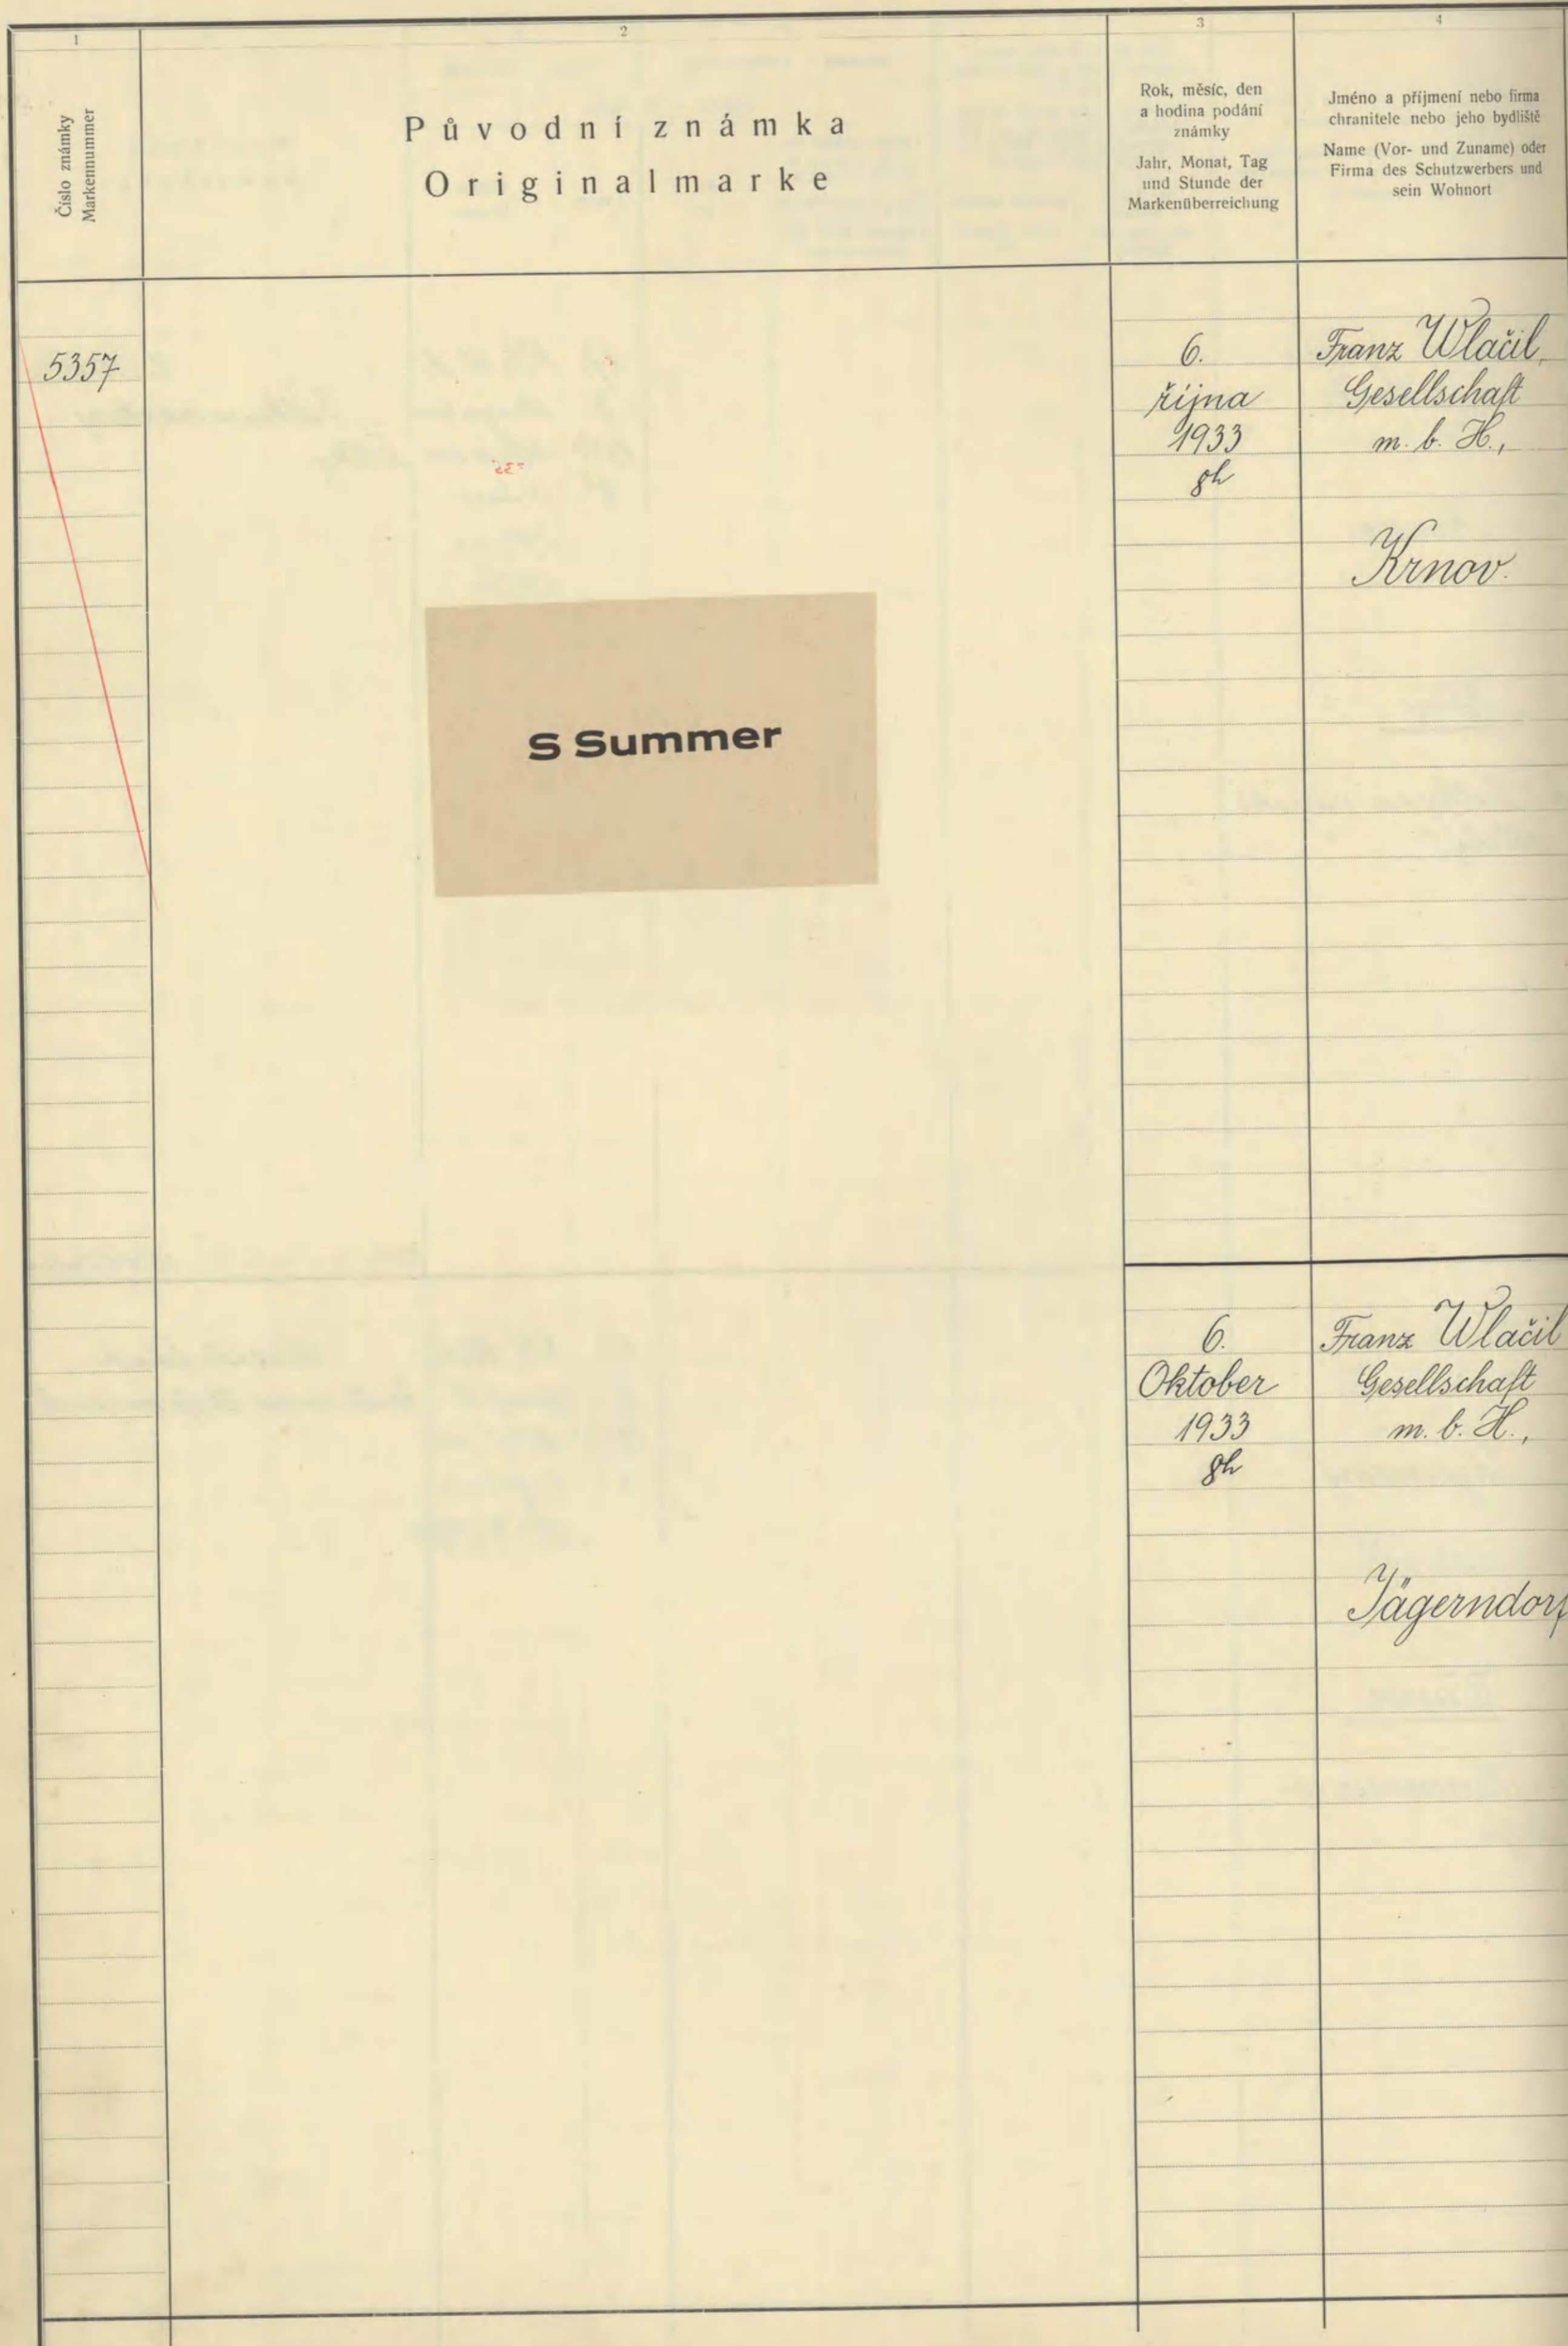 1
Číslo známky
Markennummer
2
Původní známka
Originalmarke
3
Rok, měsíc, den
a hodina podání
známky
Jahr, Monat, Tag
und Stunde der
Markenüberreichung
4
Jméno a příjmení nebo firma
chranitele nebo jeho bydliště
Name (Vor- und Zuname) oder
Firma des Schutzwerbers und
sein Wohnort
5357
S Summer
6.
října
1933
8h
Franz Wlačil,
Gesellschaft
m. b. H.,
Krnov.
6.
Oktober
1933
8h
Franz Wlačil
Gesellschaft
m. b. H.,
Jägerndorf